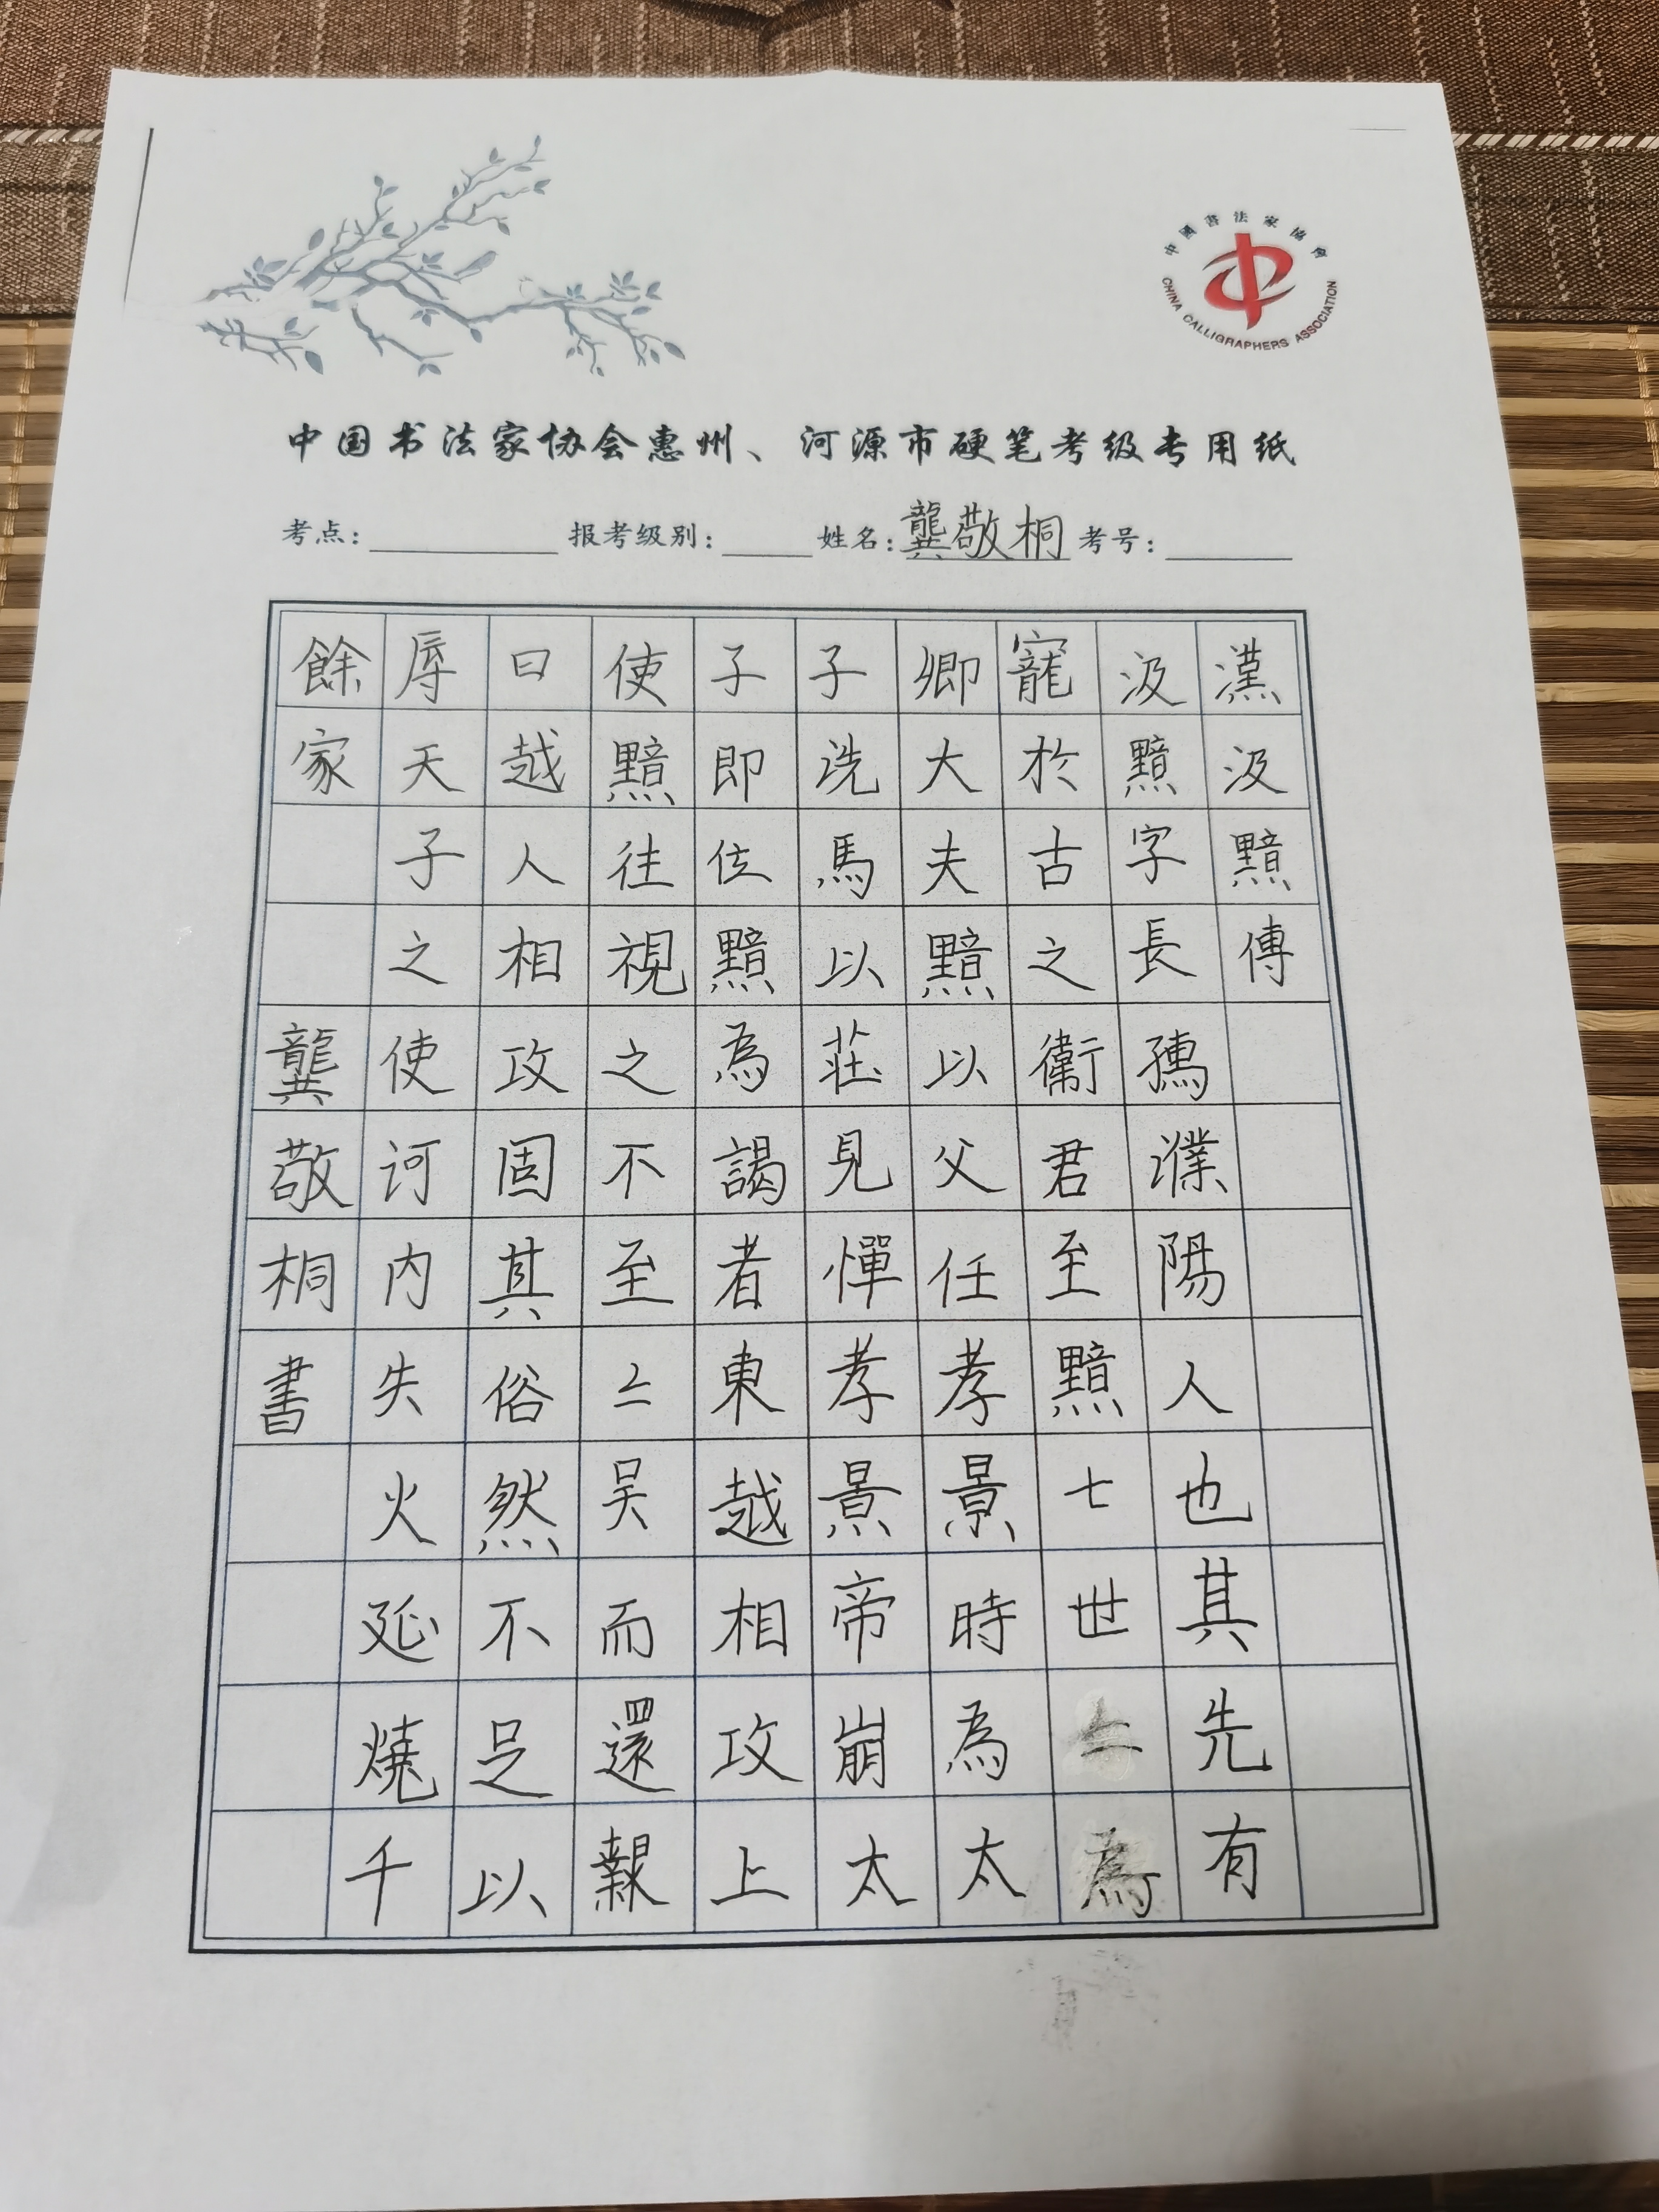 中國書法家協會
CHINA CALLIGRAPHERS ASSOCIATION
中国书法家协会惠州、河源市硬笔考级专用纸
考点: 报考级别: 姓名:龔敬桐 考号:
漢汲黯傳
汲黯字長孺濮陽人也其先有
寵於古之衛君至黯七世二為
卿大夫黯以父任孝景時為太
子洗馬以莊見憚孝景帝崩太
子即位黯為謁者東越相攻上
使黯往視之不至上吴而還報
曰越人相攻固其俗然不足以
辱天子之使诃内失火延燒千
餘家
龔敬桐書